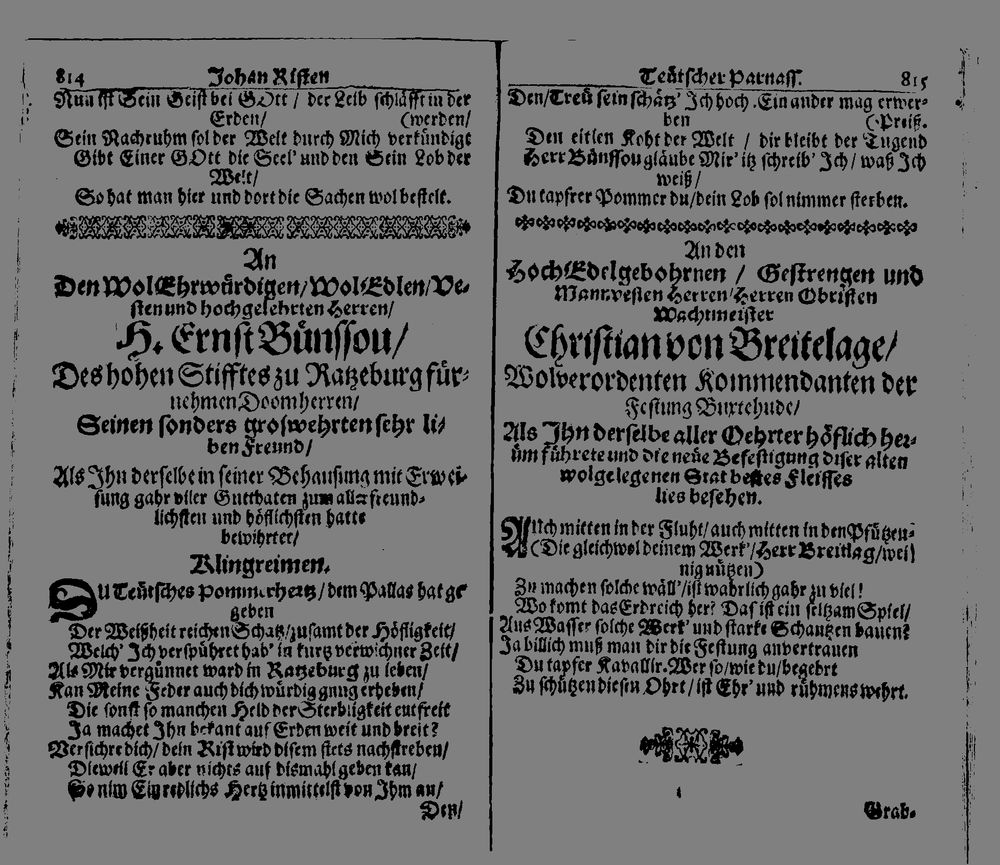 814 Johan Risten
Nun ist Sein Geist bei GOtt / der Leib schläfft in der
Erden/ (werden/
Sein Nachruhm sol der Welt durch Mich verkündigt
Gibt Einer GOtt die Seel' und den Sein Lob der
Welt/
So hat man hier und dort die Sachen wol bestelt.
An
Den WolEhrwürdigen/WolEdlen/Ve-
sten und hochgelehrten Herren/
H. Ernst Bünssou/
Des hohen Stifftes zu Ratzeburg für-
nehmen Doomherren/
Seinen sonders groswehrten sehr li-
ben Freund/
Als Ihn derselbe in seiner Behausung mit Erwei-
sung gahr viler Gutthaten zum aller freund-
lichsten und höflichsten hatte
bewihrtet/
Klingreimen.
DU Teütsches Pommerhertz/dem Pallas hat ge
geben
Der Weißheit reichen Schatz/zusamt der Höfligkeit/
Welch' Ich verspühret hab' in kurtz verwichner Zeit/
Als Mir vergünnet ward in Ratzeburg zu leben/
Kan Meine Feder auch dich würdig gnug erheben/
Die sonst so manchen Held der Sterbligkeit entfreit
Ja machet Ihn bekant auf Erden weit und breit?
Versichre dich/dein Rist wird disem stets nachstreben/
Dieweil Er aber nichts auf dismahl geben kan/
So nim Ein redlichs Hertz inmittelst von Ihm an/
Den/
Teütscher Parnass. 815
Den/Treü sein schätz' Ich hoch. Ein ander mag erwer-
ben (Preiß.
Den eitlen Koht der Welt / dir bleibt der Tugend
Herr Bünssou gläube Mir' itz schreib' Ich/ waß Ich
weiß/
Du tapfrer Pommer du/dein Lob sol nimmer sterben.
An den
HochEdelgebohrnen / Gestrengen und
Mannvesten Herren/Herren Obristen
Wachtmeister
Christian von Breitelage/
Wolverordenten Kommendanten der
Festung Buxtehude/
Als Ihn derselbe aller Oehrter höflich her-
üm führete und die neüe Befestigung diser alten
wolgelegenen Stat bestes Fleisses
lies besehen.
AUch mitten in der Fluht/auch mitten in den Pfützen
(Die gleichwol deinem Werk'/Herr Breitlag/wei
nig nützen)
Zu machen solche wäll'/ist wahrlich gahr zu viel!
Wo komt das Erdreich her? Das ist ein seltzam Spiel/
Aus Wasser solche Werk' und starke Schantzen bauen?
Ja billich muß man dir die Festung anvertrauen
Du tapfer Kavallir. Wer so/wie du/begehrt
Zu schützen diesen Ohrt/ist Ehr' und rühmens wehrt.
Grab-